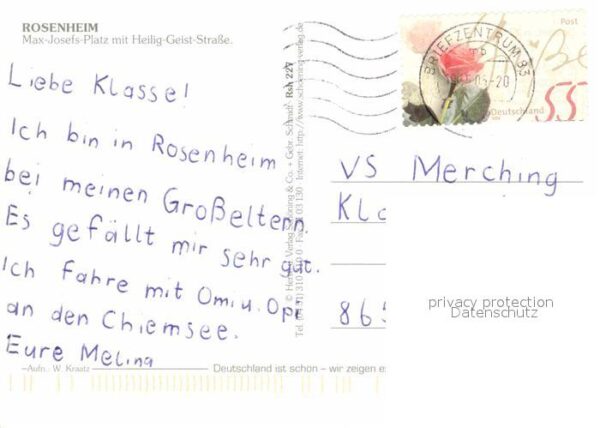 ROSENHEIM
Max-Josefs-Platz mit Heilig-Geist-Straße.
Liebe Klasse!
Ich bin in Rosenheim
bei meinen Großeltern.
Es gefällt mir sehr gut.
Ich fahre mit Omi u. Opi
an den Chiemsee.
Eure Melina
Aufn.: W. Kraatz
Deutschland ist schön – wir zeigen es
© Verlag Schöning & Co. + Gebr. Schmidt Rsh 227
Internet: http://www.schoening-verlag.de
BRIEFZENTRUM 83
Post
Deutschland
55
VS Merching
Kla
865
privacy protection
Datenschutz